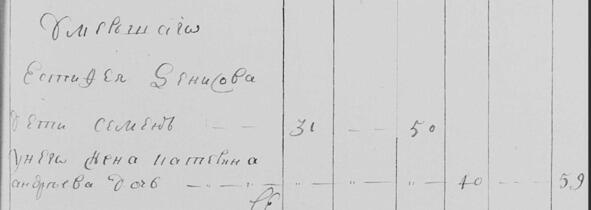 Умершаго
Естифея Денисова
Дети Семенъ — — 31 — — 50
У него жена Матвина
андреева дочь — „ — „ — „ — „ — 40 — — 59